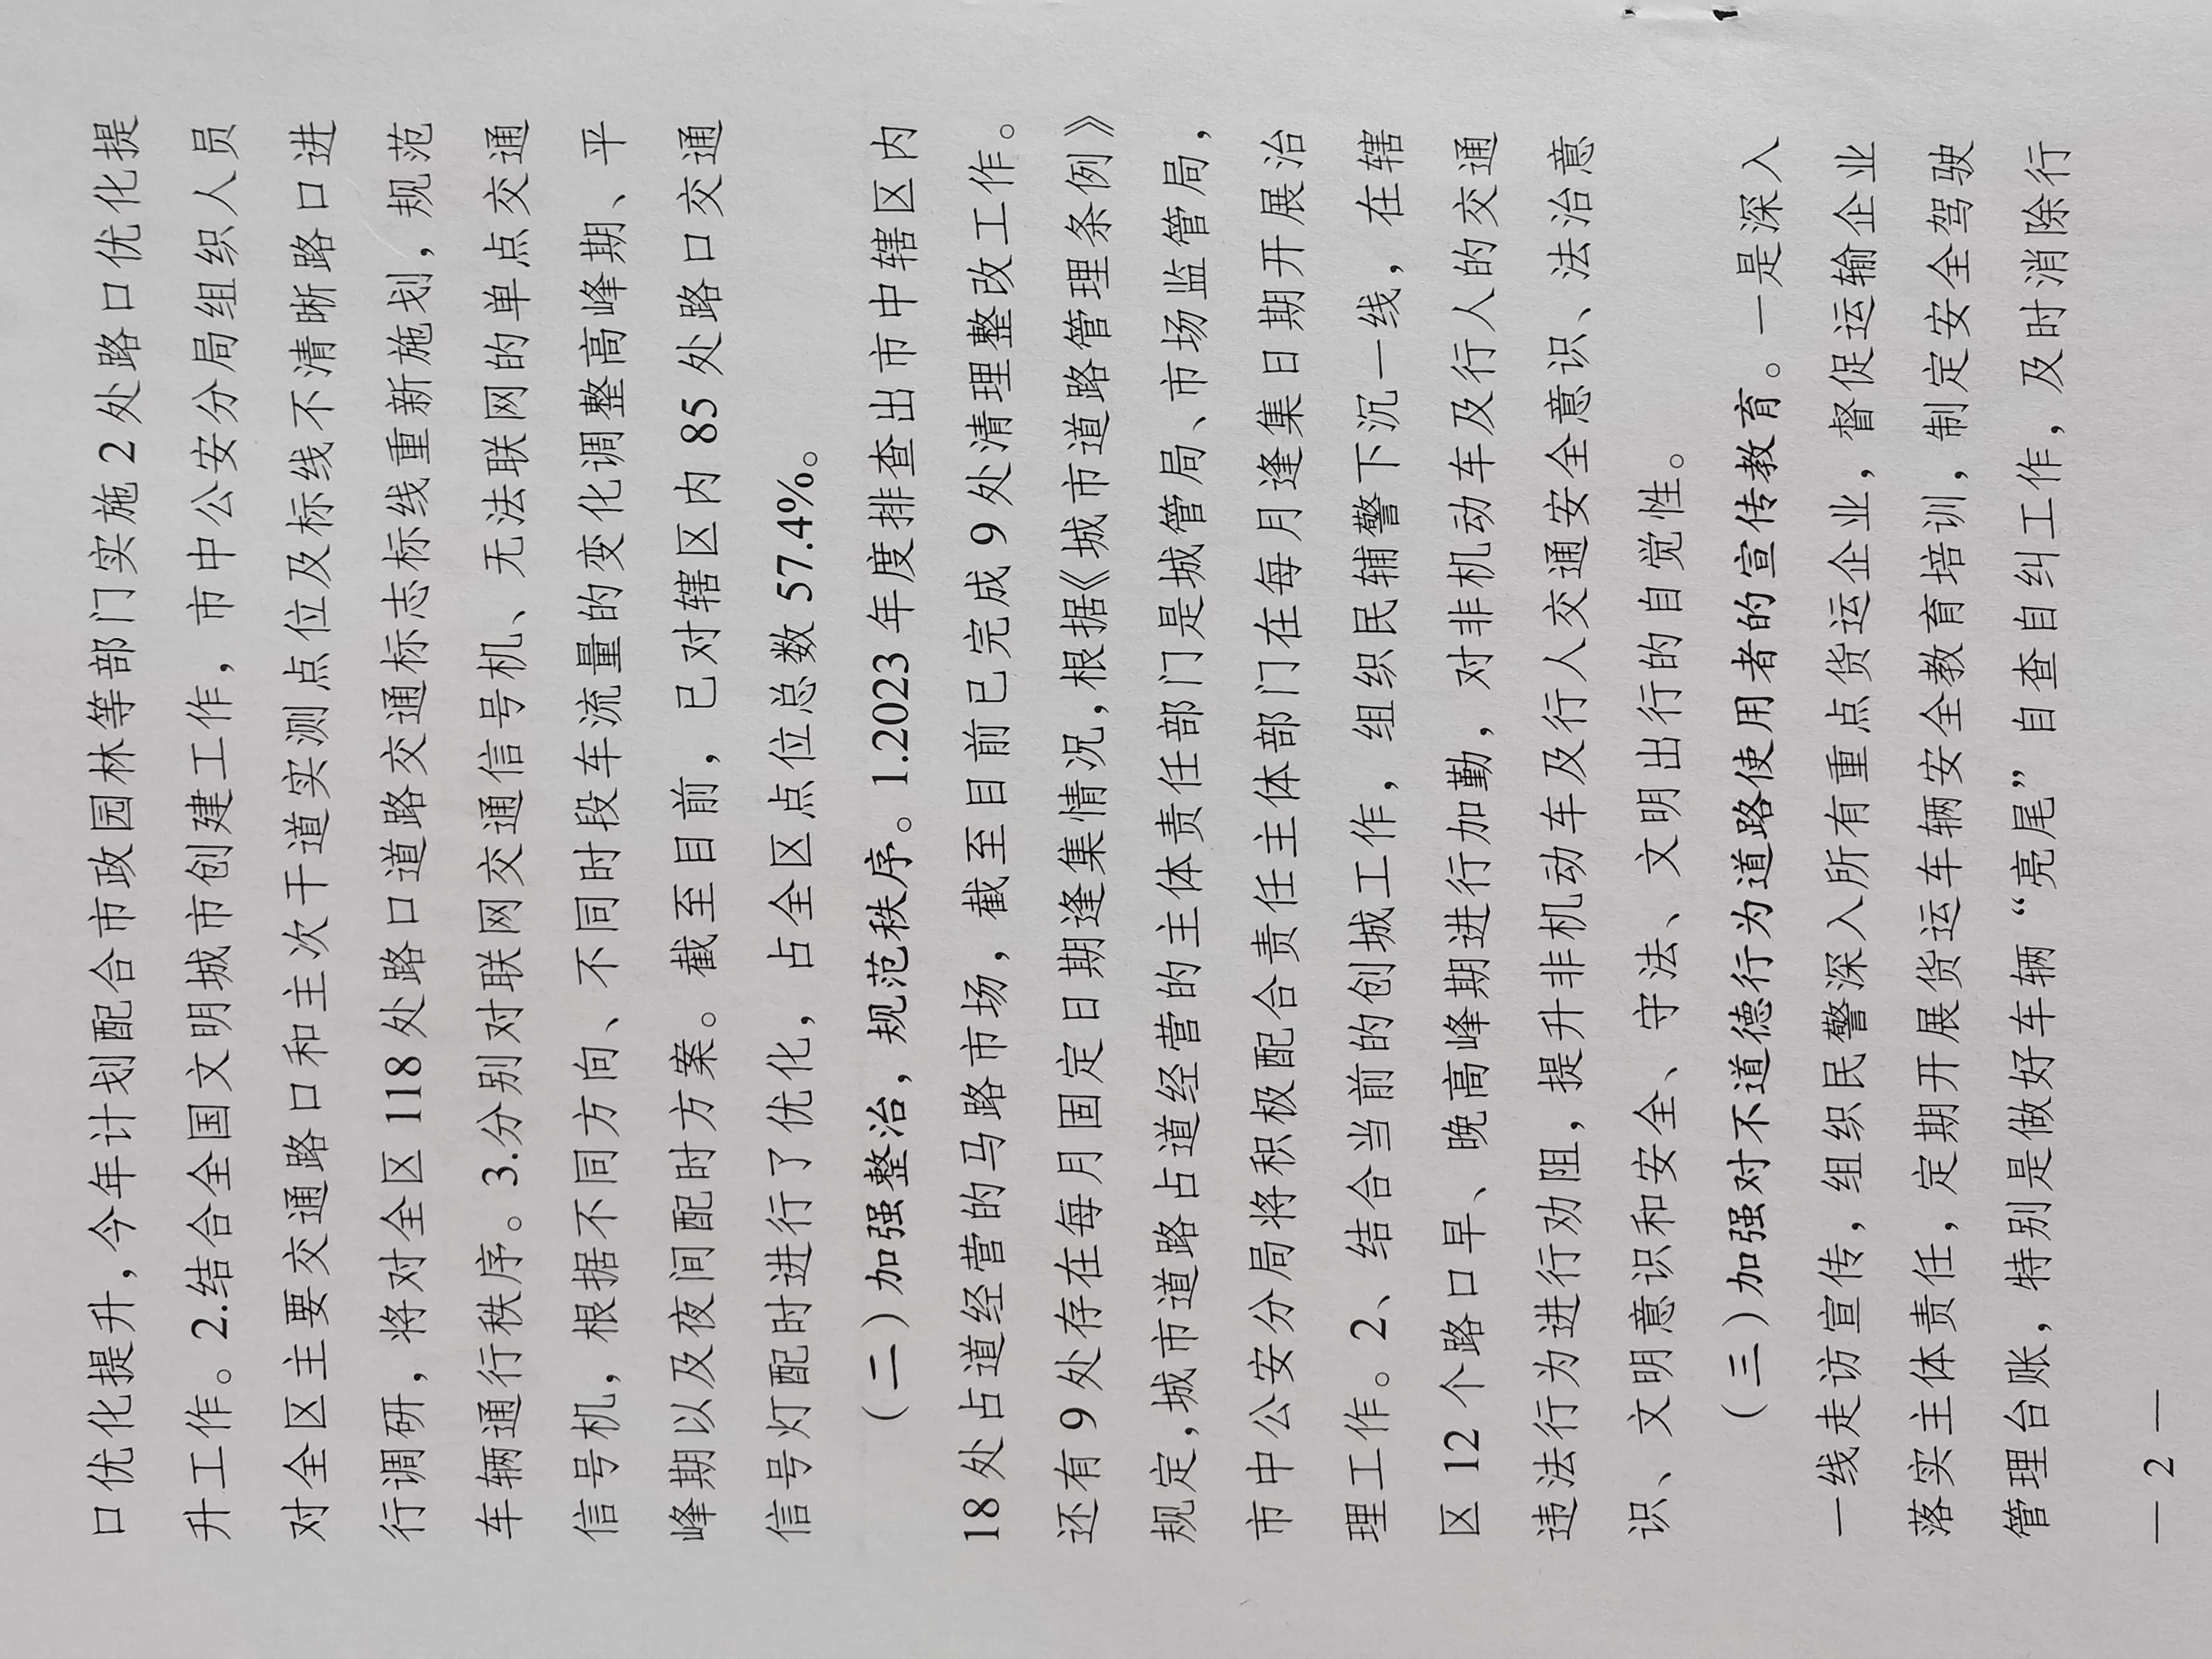 口优化提升，今年计划配合市政园林等部门实施 2 处路口优化提
升工作。2.结合全国文明城市创建工作，市中公安分局组织人员
对全区主要交通路口和主次干道实测点位及标线不清晰路口进
行调研，将对全区 118 处路口道路交通标志标线重新施划，规范
车辆通行秩序。3.分别对联网交通信号机、无法联网的单点交通
信号机，根据不同方向、不同时段车流量的变化调整高峰期、平
峰期以及夜间配时方案。截至目前，已对辖区内 85 处路口交通
信号灯配时进行了优化，占全区点位总数 57.4%。
（二）加强整治，规范秩序。1.2023 年度排查出市中辖区内
18 处占道经营的马路市场，截至目前已完成 9 处清理整改工作。
还有 9 处存在每月固定日期逢集情况，根据《城市道路管理条例》
规定，城市道路占道经营的主体责任部门是城管局、市场监管局，
市中公安分局将积极配合责任主体部门在每月逢集日期开展治
理工作。2、结合当前的创城工作，组织民辅警下沉一线，在辖
区 12 个路口早、晚高峰期进行加勤，对非机动车及行人的交通
违法行为进行劝阻，提升非机动车及行人交通安全意识、法治意
识、文明意识和安全、守法、文明出行的自觉性。
（三）加强对不道德行为道路使用者的宣传教育。一是深入
一线走访宣传，组织民警深入所有重点货运企业，督促运输企业
落实主体责任，定期开展货运车辆安全教育培训，制定安全驾驶
管理台账，特别是做好车辆“亮尾”自查自纠工作，及时消除行
— 2 —